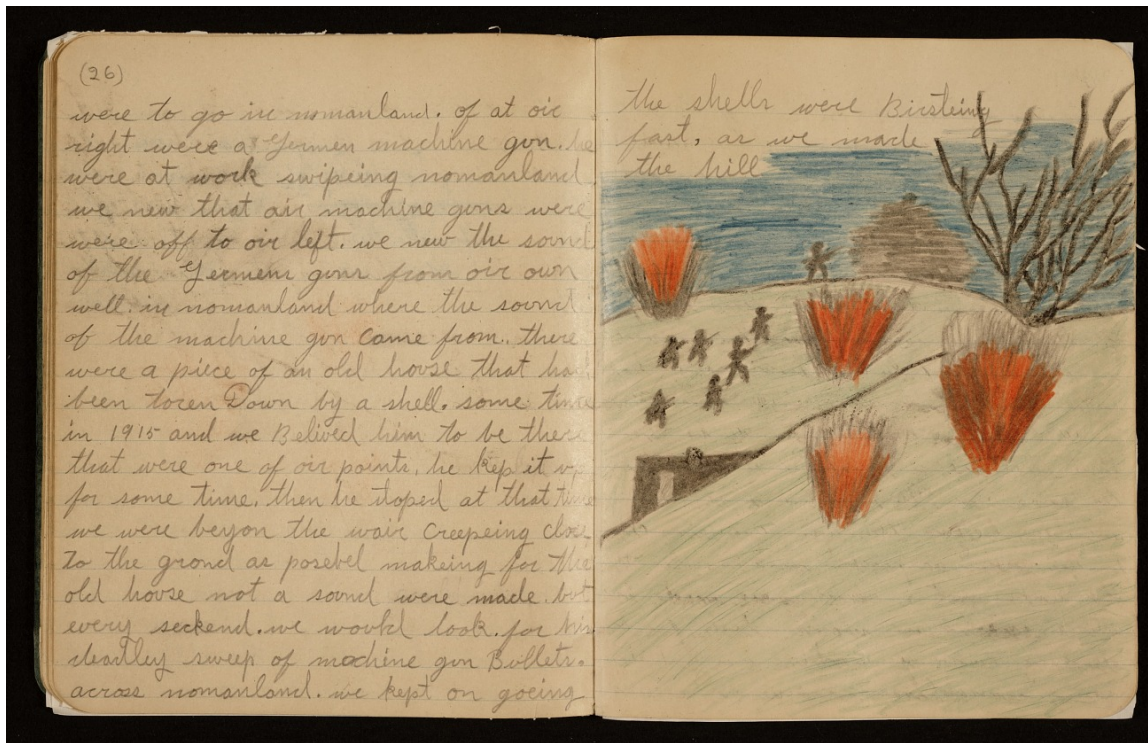 (26)
were to go in nomanland. of at oir
right were a Germen machine gon. he
were at work swipeing nomanland
we new that oir machine gons were
were off to oir left. we new the sound
of the Germens gons from oir own
well. in nomanland where the sound
of the machine gon came from. there
were a piece of an old house that had
been toren Down by a shell. some time
in 1915 and we Belived him to be there
that were one of oir points. he kep it up
for some time. then he stoped at that time
we were beyon the wair Creepeing close
to the grond as posebel makeing for the
old house not a sound were made. but
every seckend. we would look. for his
deadley sweep of machine gon Bullets.
across nomanland. we kept on goeing
the shells were Birsteing
fast, as we made
the hill